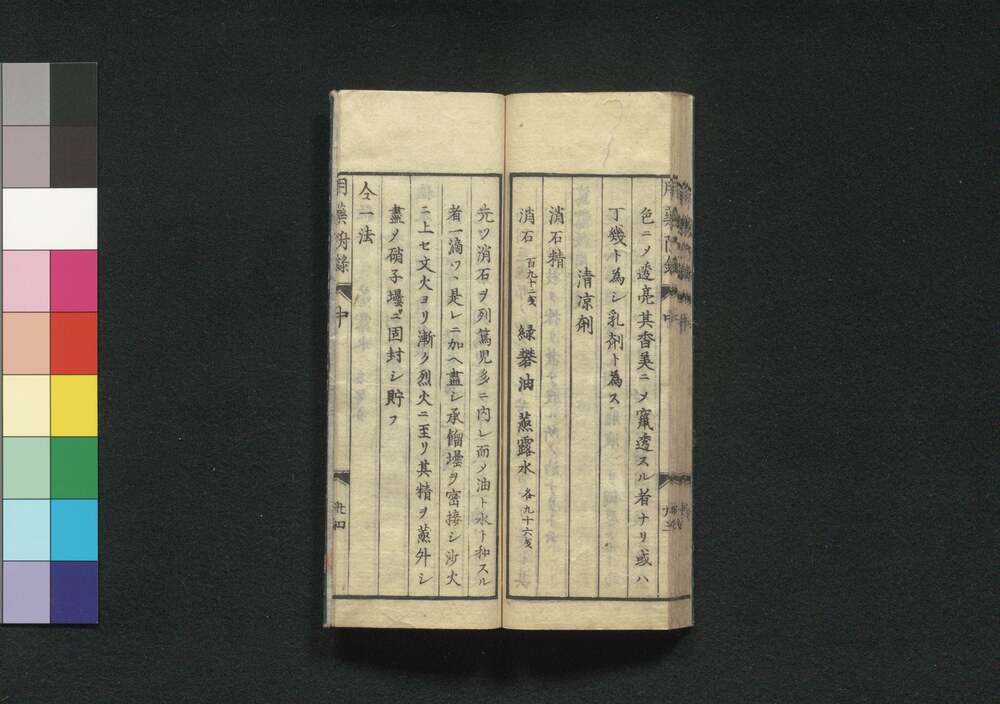 色ニメ透亮其香美ニメ竄透スル者ナリ或ハ
丁幾ト為シ乳剤ト為ス
清涼剤
消石精
消石 百九十二戔 緑礬油 蒸露水 各九十六戔
先ツ消石ヲ列篤児多ニ内レ而メ油ト水ト和スル
者一滴ツヽ是レニ加ヘ盡シ承餾壜ヲ密接シ沙火
ニ上セ文火ヨリ漸ク烈火ニ至リ其精ヲ蒸外シ
盡メ硝子壜ニ固封シ貯フ
仝一法
中
廿四